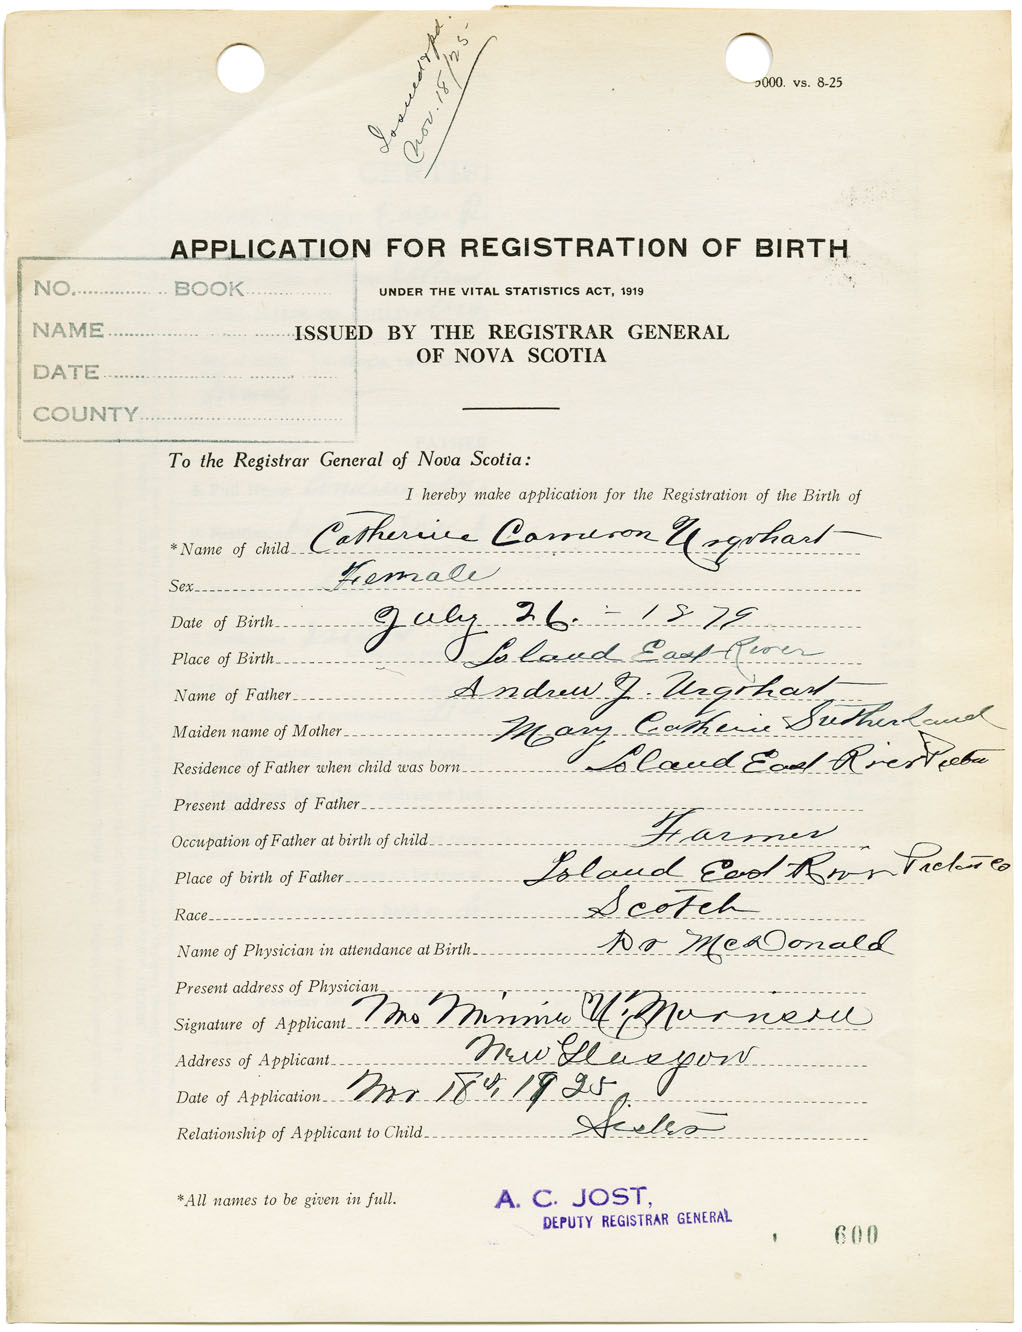 Issued & pd.
Nov. 18/25
5000. vs. 8-25
APPLICATION FOR REGISTRATION OF BIRTH
UNDER THE VITAL STATISTICS ACT, 1919
ISSUED BY THE REGISTRAR GENERAL
OF NOVA SCOTIA
NO. BOOK
NAME
DATE
COUNTY
To the Registrar General of Nova Scotia:
I hereby make application for the Registration of the Birth of
*Name of child Catherine Cameron Urquhart
Sex Female
Date of Birth July 26. - 1879
Place of Birth Island East River
Name of Father Andrew J. Urquhart
Maiden name of Mother Mary Catherine Sutherland
Residence of Father when child was born Island East River Pictou
Present address of Father
Occupation of Father at birth of child Farmer
Place of birth of Father Island East River Pictou Co
Race Scotch
Name of Physician in attendance at Birth Dr McDonald
Present address of Physician
Signature of Applicant Mrs Minnie U. Morrison
Address of Applicant New Glasgow
Date of Application Nov 18th, 1925
Relationship of Applicant to Child Sister
*All names to be given in full.
A. C. JOST,
DEPUTY REGISTRAR GENERAL
600